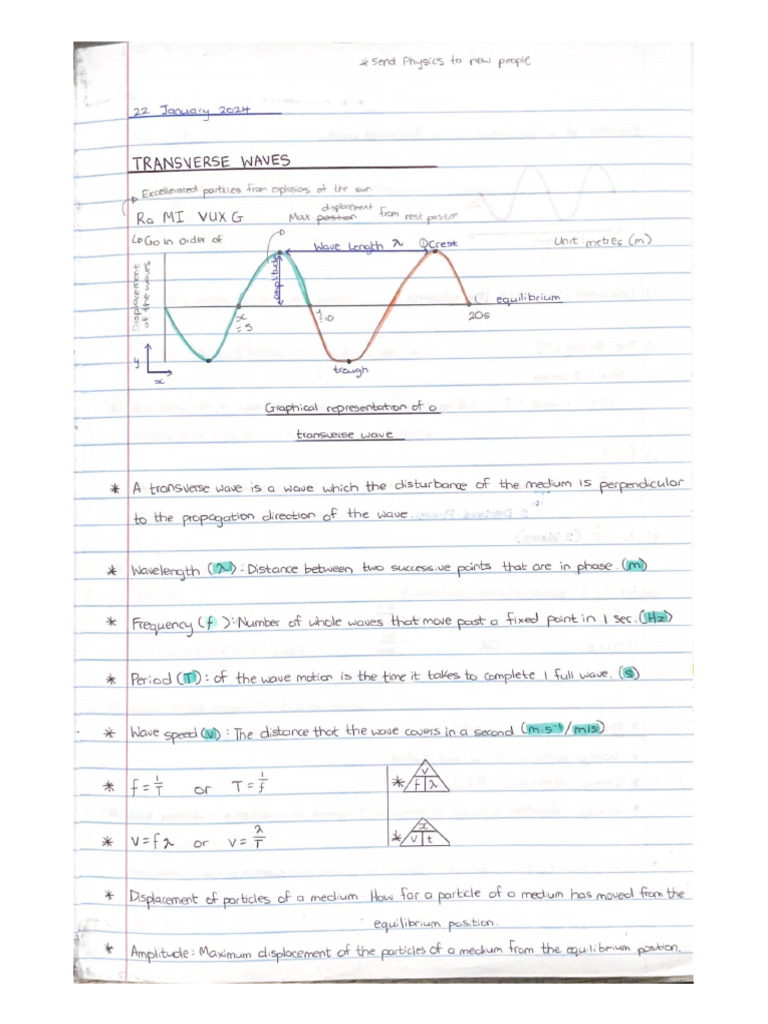 * Send Physics to new people
22 January 2024
TRANSVERSE WAVES
Excellerated particles from explosions of the sun
Ra MI VUX G
Max position displacement from rest position
Go in order of
Wave Length λ
① Crest
Unit metres (m)
Displacement of the waves
amplitude
equilibrium
x = 5
10
20s
y
x
trough
Graphical representation of a
transverse wave
* A transverse wave is a wave which the disturbance of the medium is perpendicular
to the propagation direction of the wave.
* Wavelength (λ): Distance between two successive points that are in phase. (m)
* Frequency (f): Number of whole waves that move past a fixed point in 1 sec. (Hz)
* Period (T): of the wave motion is the time it takes to complete 1 full wave. (s)
* Wave speed (v): The distance that the wave covers in a second (m.s⁻¹/m/s)
* f = 1/T or T = 1/f
* v f λ
* v = f λ or v = λ/T
* x v t
* Displacement of particles of a medium. How far a particle of a medium has moved from the
equilibrium position.
* Amplitude: Maximum displacement of the particles of a medium from the equilibrium position.